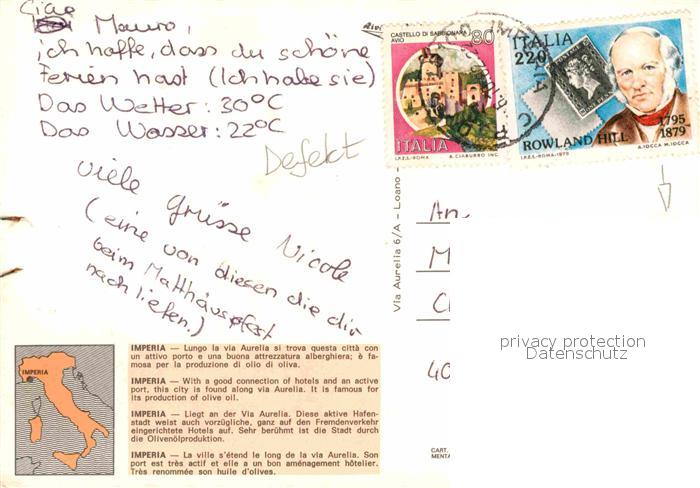 Ciao
Mauro,
ich hoffe, dass du schöne
Ferien hast (Ich habe sie)
Das Wetter: 30°C
Das Wasser: 22°C
Defekt
viele Grüsse Nicole
(eine von diesen die dir
beim Matthäuspfest
nach liefen.)
CASTELLO DI SABBIONARA
AVIO
80
ITALIA
I.P.Z.S.-ROMA
A. CIABURRO INC.
ITALIA
220
1795
1879
ROWLAND HILL
I.P.Z.S.-ROMA-1979
A. IOCCA M. IOCCA
Via Aurelia 6/A - Loano -
An
M
C
40
privacy protection
Datenschutz
IMPERIA
IMPERIA — Lungo la via Aurelia si trova questa città con
un attivo porto e una buona attrezzatura alberghiera; è fa-
mosa per la produzione di olio di oliva.
IMPERIA — With a good connection of hotels and an active
port, this city is found along via Aurelia. It is famous for
its production of olive oil.
IMPERIA — Liegt an der Via Aurelia. Diese aktive Hafen-
stadt weist auch vorzügliche, ganz auf den Fremdenverkehr
eingerichtete Hotels auf. Sehr berühmt ist die Stadt durch
die Olivenölproduktion.
IMPERIA — La ville s'étend le long de la via Aurelia. Son
port est très actif et elle a un bon aménagement hôtelier.
Très renommée son huile d'olives.
CART.
MENTA